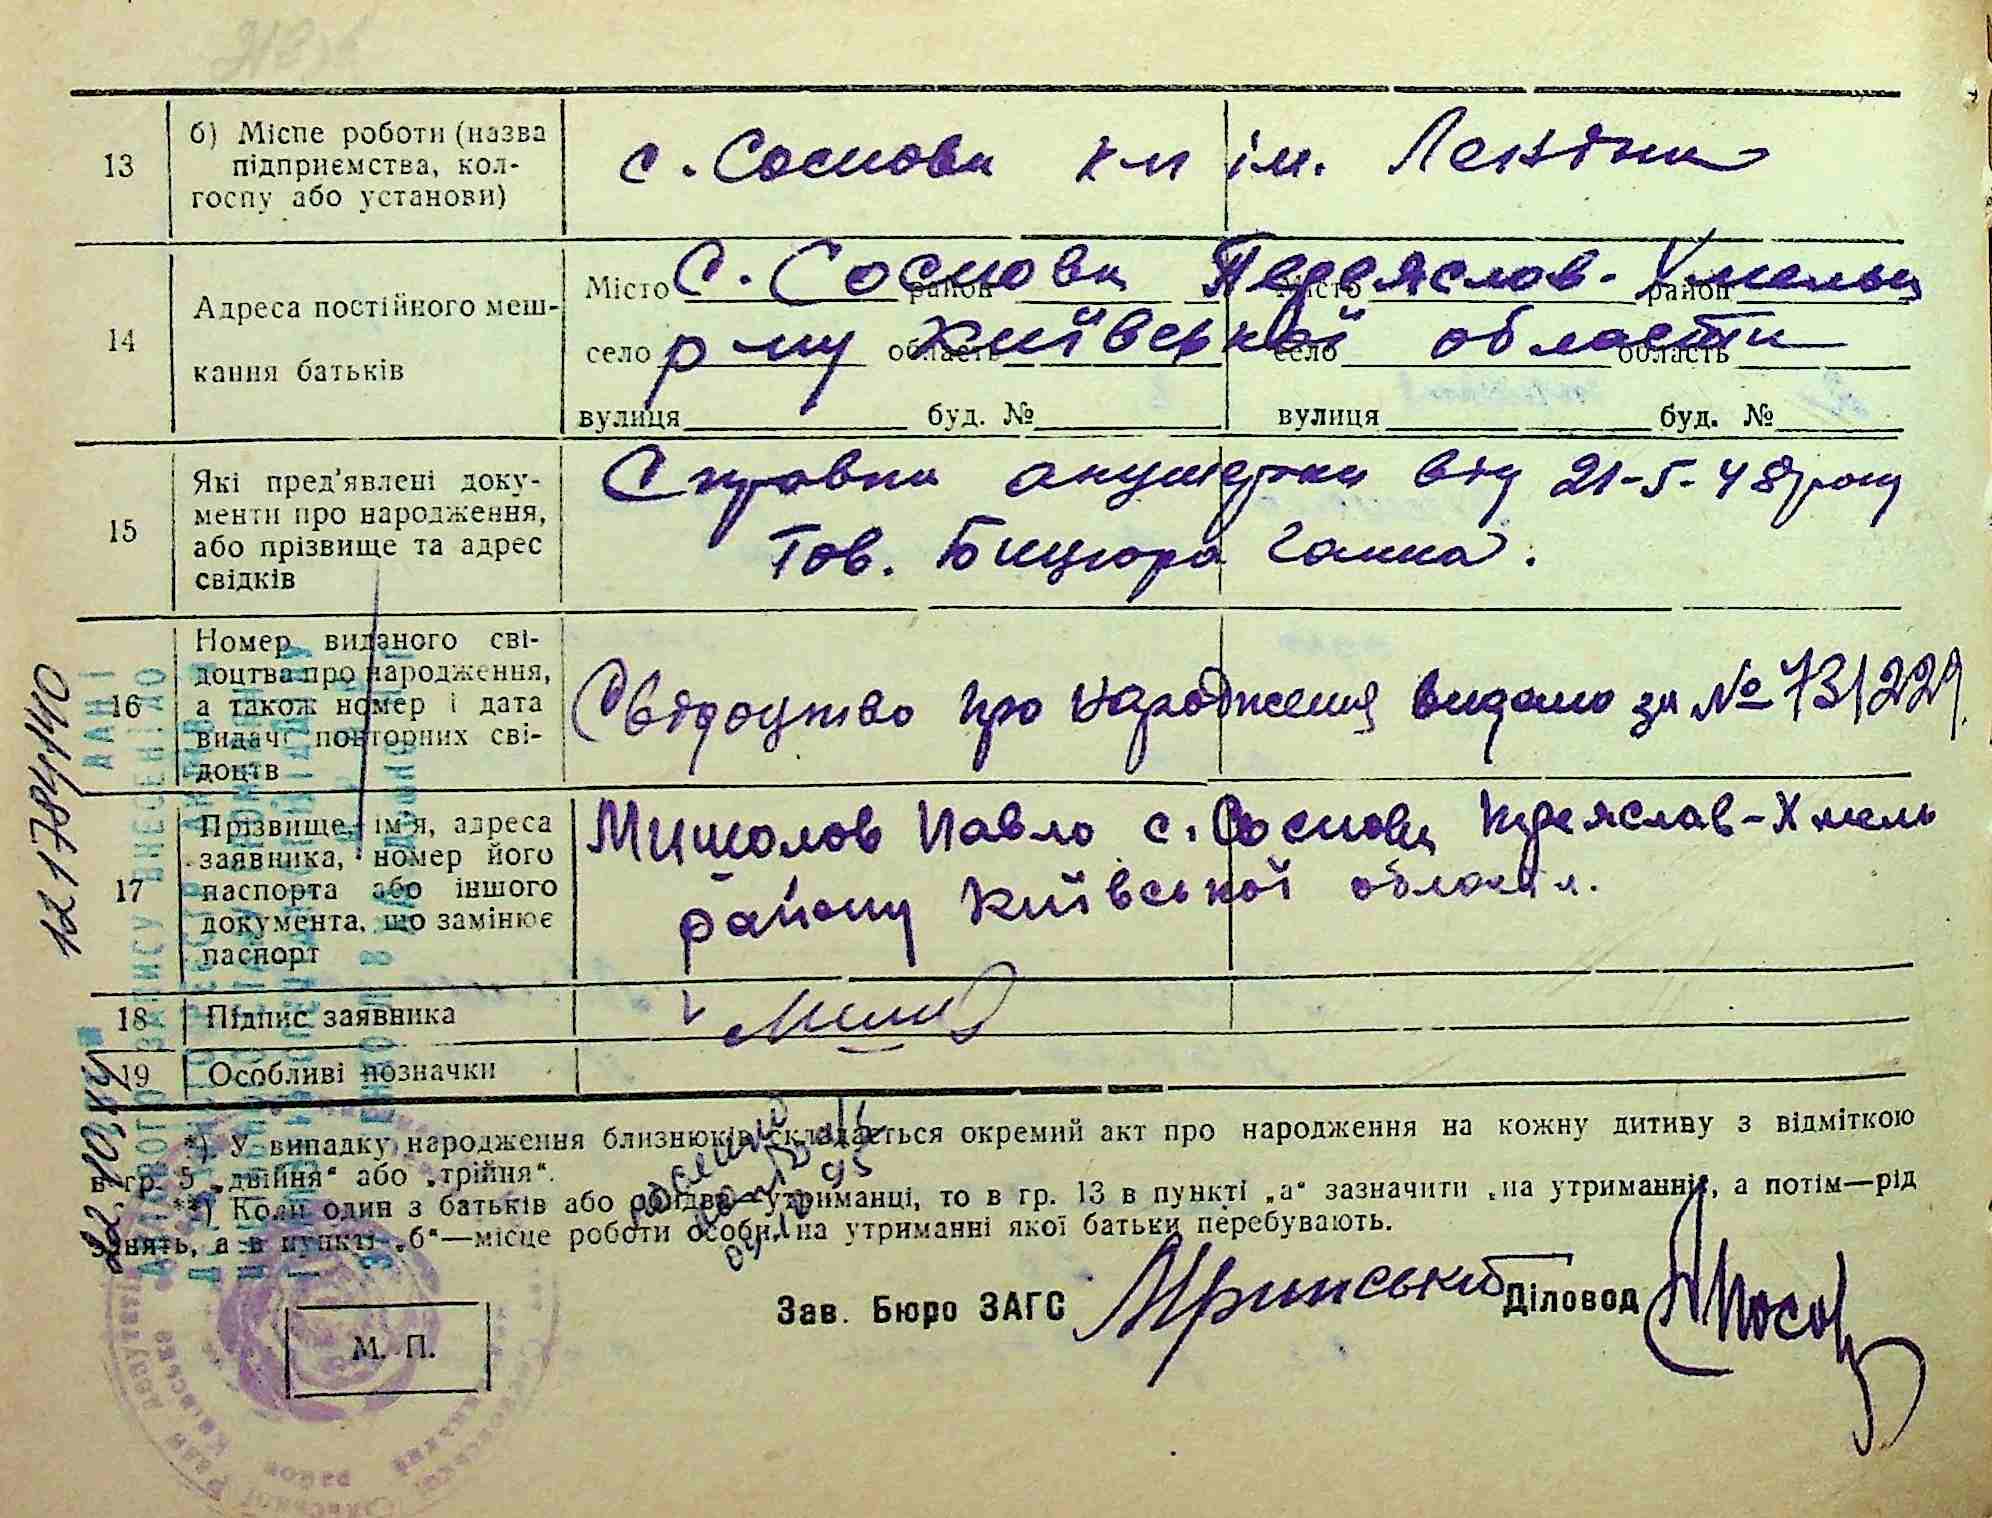 13 б) Місце роботи (назва
підприємства, кол-
госпу або установи)
с. Соснова к-п ім. Леніна
14 Адреса постійного меш-
кання батьків
Місто район Місто район
с. Соснова Переяслав-Хмельн
село область село область
р-ну Київської області
вулиця буд. № вулиця буд. №
15 Які пред'явлені доку-
менти про народження,
або прізвище та адрес
свідків
Справка акушерки від 21-5-48 року
Тов. Бицюра Ганна.
16 Номер виданого сві-
доцтва про народження,
а також номер і дата
видачі повторних сві-
доцтв
Свідоцтво про народження видано за № 731229
17 Прізвище, ім'я, адреса
заявника, номер його
паспорта або іншого
документа, що замінює
паспорт
Мишолов Павло с. Соснова Переяслав-Хмель
району Київської області.
18 Підпис заявника
19 Особливі позначки
*) У випадку народження близнюків складається окремий акт про народження на кожну дитину з відміткою
в гр. 5 „двійня“ або „трійня“.
**) Коли один з батьків або обидва—утриманці, то в гр. 13 в пункті „а“ зазначити „на утриманні“, а потім—рід
занять, а в пункті „б“—місце роботи особи, на утриманні якої батьки перебувають.
Зав. Бюро ЗАГС Діловод
М. П.
ДАНІ
ЗАПИСУ ВНЕСЕНІ ДО